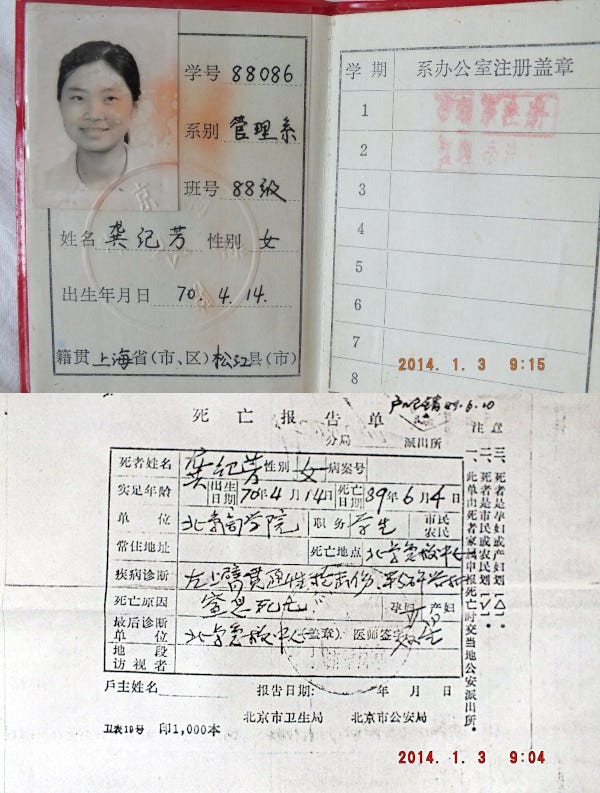 学号 88086
系别 管理系
班号 88级
姓名 龚纪芳 性别 女
出生年月日 70.4.14.
籍贯 上海省(市、区)松江县(市)
学期 系办公室注册盖章
1
2
3
4
5
6
7
8
2014. 1. 3 9:15
89.6.10
死亡报告单
分局 派出所
死者姓名 龚纪芳 性别 女 病案号
实足年龄 出生日期 70年4月14日 死亡日期 89年6月4日
单位 北京商学院 职务 学生 市民 农民
常住地址 死亡地点 北京急救中心
疾病诊断 左上臂贯通性枪击伤
死亡原因
孕妇 产妇
最后诊断单位 北京急救中心 (盖章) 医师签字
地段访视者
户主姓名 报告日期: 年 月 日
卫表19号 印1,000本 北京市卫生局 北京市公安局
注意
一、此单由死者家属申报死亡时交当地公安派出所。
二、死者是市民或农民划〔✓〕。
三、死者是孕妇或产妇划〔△〕。
2014. 1. 3 9:04